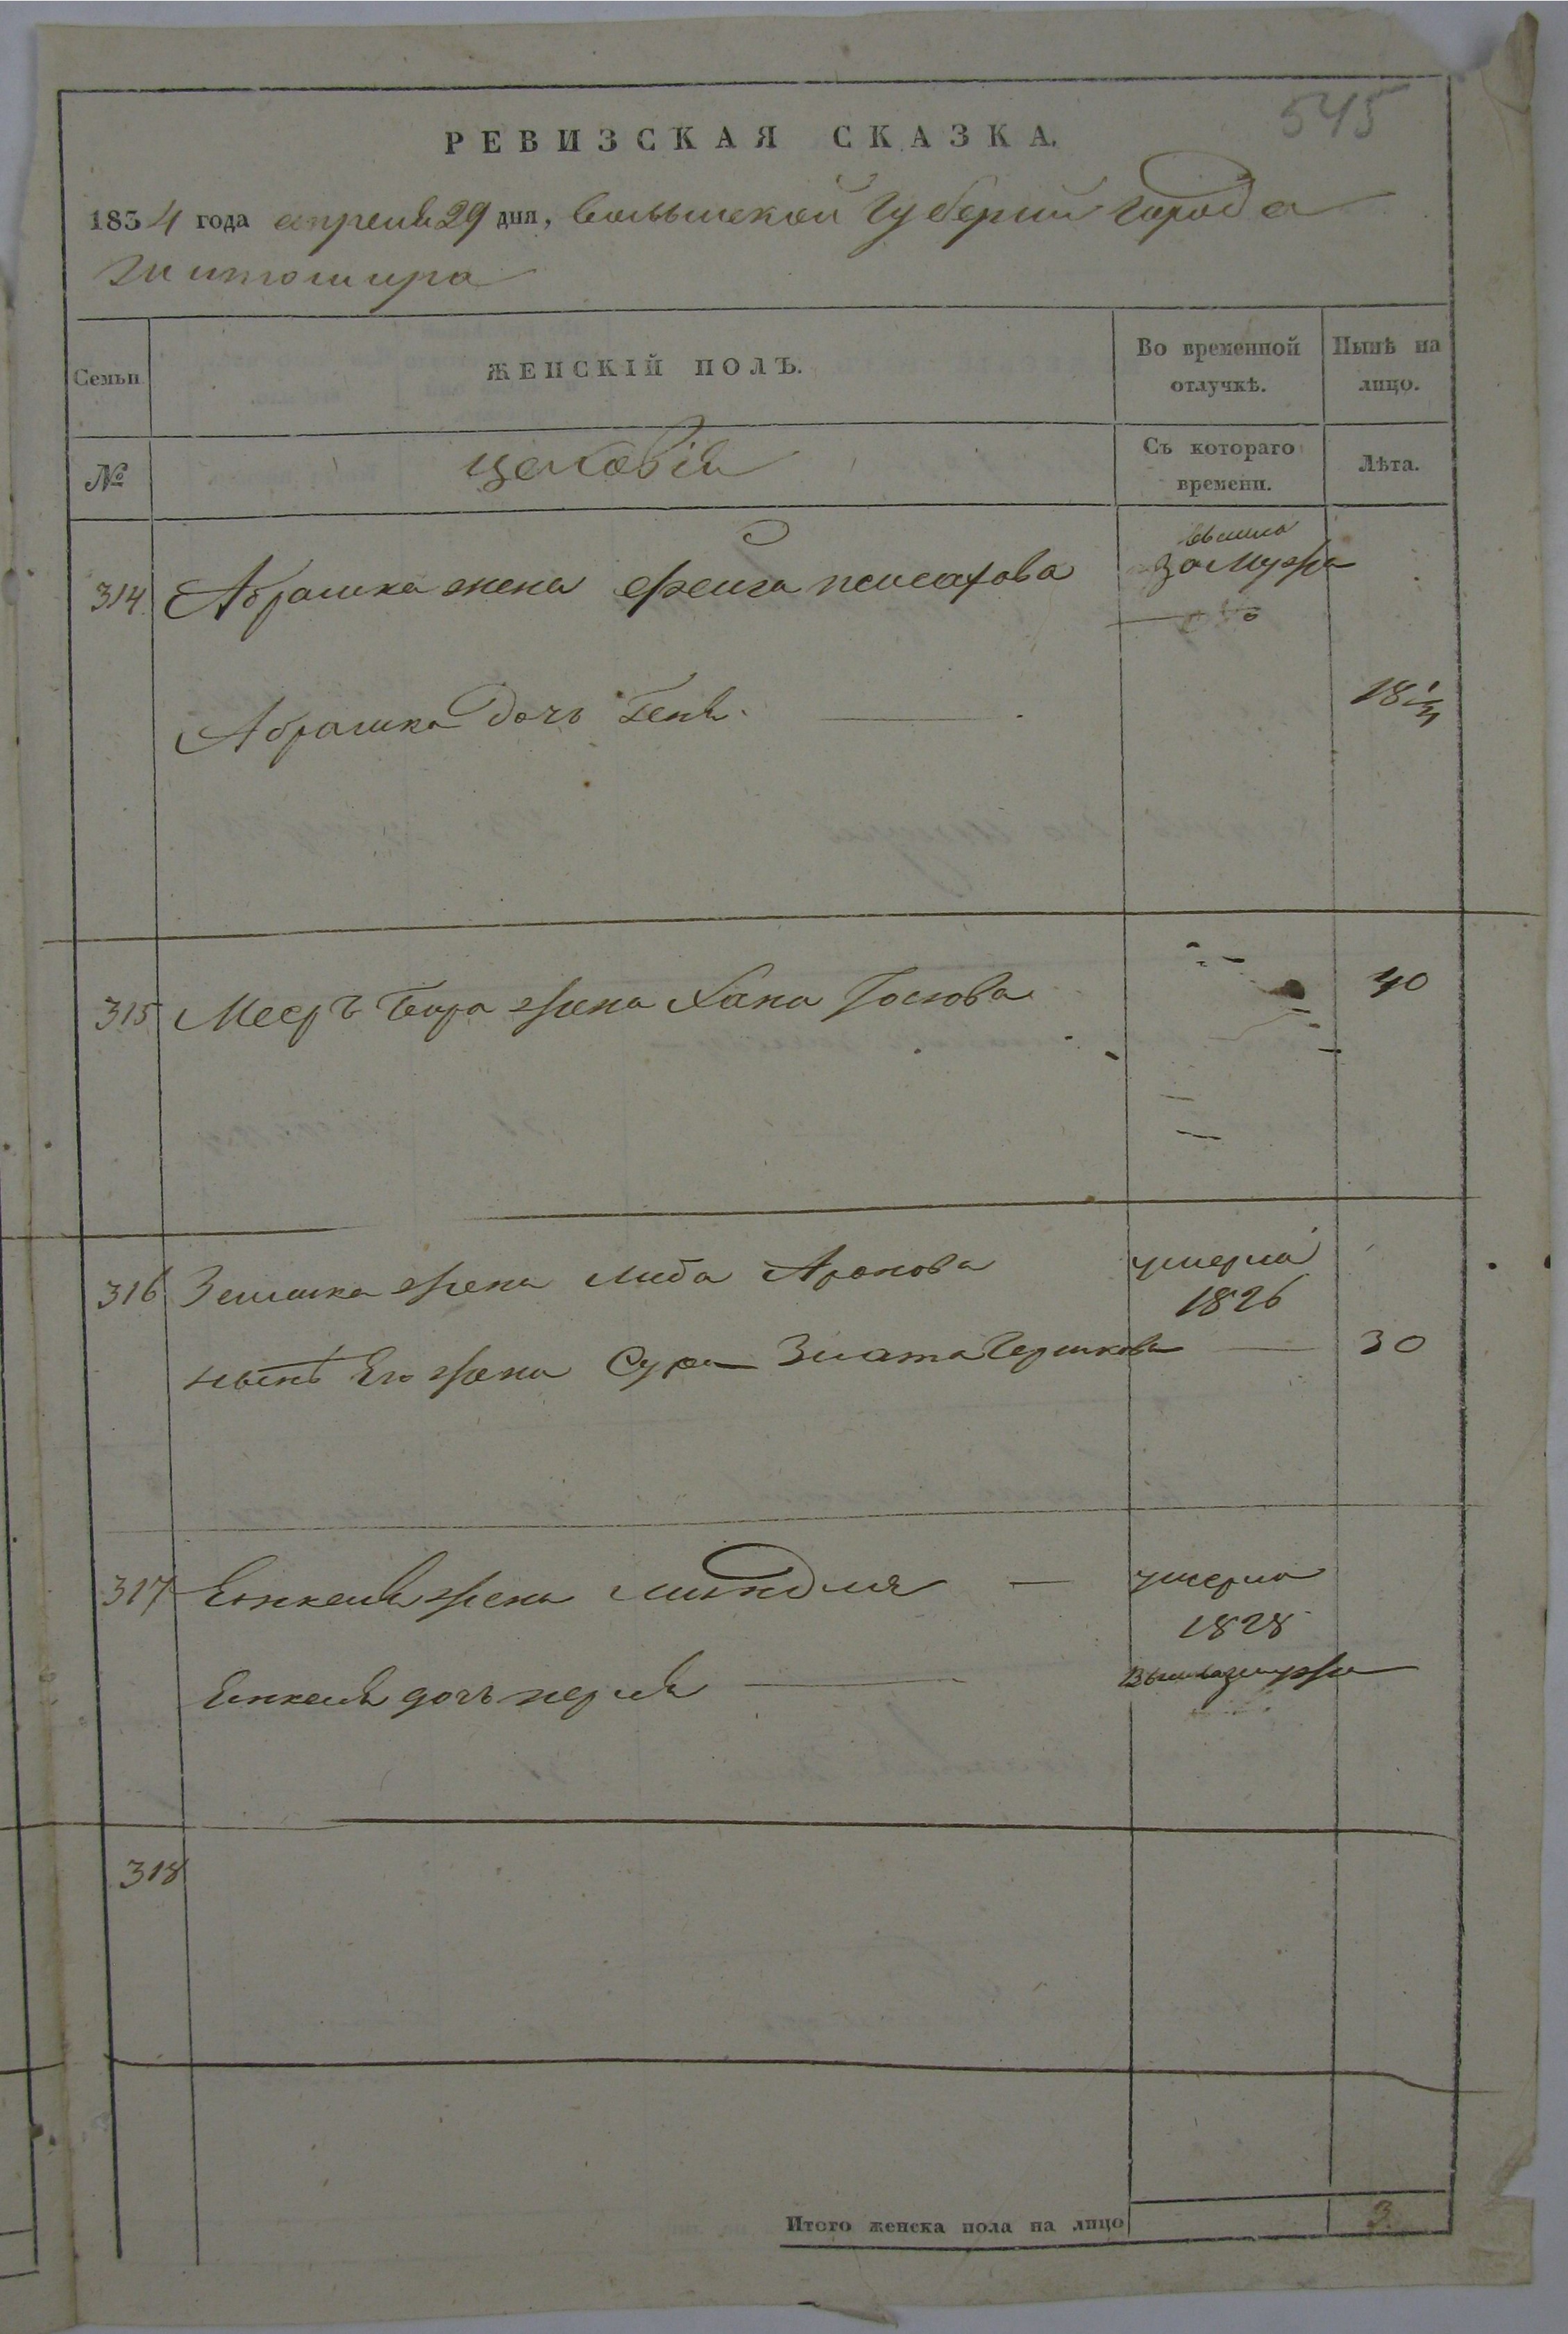 545
РЕВИЗСКАЯ СКАЗКА.
1834 года апреля 29 дня, волынской Губернии города
Житомира
Семьи
ЖЕНСКІЙ ПОЛЪ.
Во временной отлучкѣ.
Нынѣ на лицо.
№
цеховія
Съ котораго времени.
Лѣта.
314 Абрамка жена Фейга пейсахова вышла замужъ
Абрамка дочь Геня 18 1/2
315 Мееръ жена Хана 40
316 Зельмана жена Либа Аронова умерла
1826
нынѣ Его жена Сура Злата Гершкова 30
317 Енкеля жена миндля умерла
1828
Енкеля дочь перля вышла замужъ
318
Итого женска пола на лицо 3